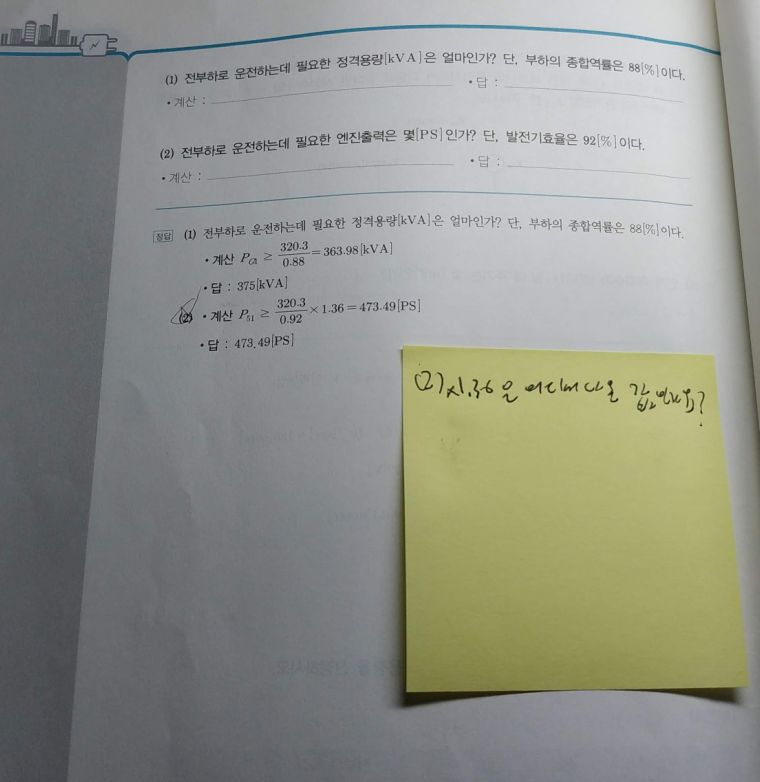 (1) 전부하로 운전하는데 필요한 정격용량[kVA]은 얼마인가? 단, 부하의 종합역률은 88[%]이다.
• 계산 : • 답 :
(2) 전부하로 운전하는데 필요한 엔진출력은 몇[PS]인가? 단, 발전기효율은 92[%]이다.
• 계산 : • 답 :
정답 (1) 전부하로 운전하는데 필요한 정격용량[kVA]은 얼마인가? 단, 부하의 종합역률은 88[%]이다.
• 계산 P_G1 ≥ 320.3/0.88 = 363.98[kVA]
• 답 : 375[kVA]
(2) • 계산 P_51 ≥ 320.3/0.92 × 1.36 = 473.49[PS]
• 답 : 473.49[PS]
(2) ×1.36은 어디에서 나온 값인가요?